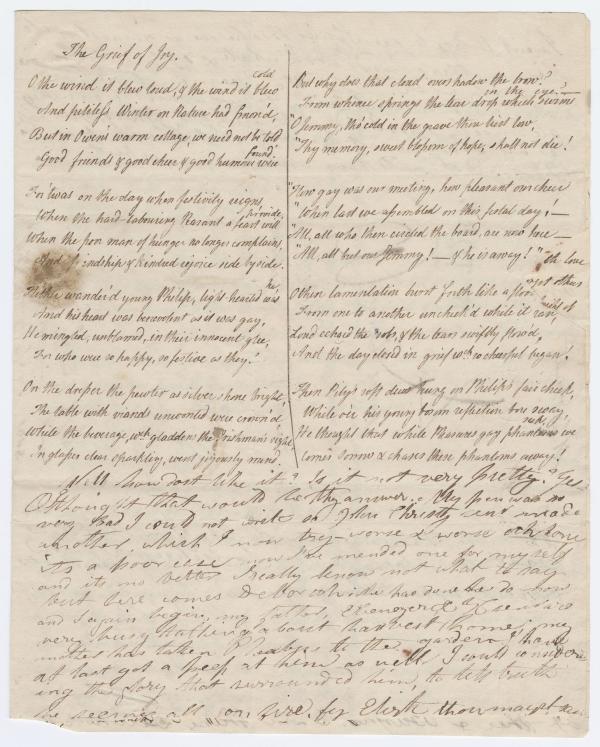 The Grief of Joy.
O the wind it blew loud, & the wind it blew cold
And pitiless Winter on Nature had frown'd,
But in Owen's warm cottage, we need not be told
Good friends & good cheer & good humour were found.
For 'twas on the day when festivity reigns,
When the hard labouring Peasant a feast will provide,
When the poor man of hunger no longer complains,
And friendship & kindred rejoice side by side.
Hither wander'd young Philip, light hearted was he,
And his heart was benevolent as it was gay,
He mingled, unblamed, in their innocent glee,
For who were so happy, so festive as they?
On the dresser the pewter as silver shone bright,
The table with viands unwonted were crown'd
While the beverage, wch gladdens the Irishman's sight
In glasses clear sparkling, went joyously round.
But why does that cloud overshadow the brow?
From whence springs the tear drop which swims in thy eye?—
"O Jemmy, tho' cold in the grave thou liest low,
"Thy memory, sweet blossom of hope, shall not die!
"How gay was our meeting, how pleasant our cheer
"When last we assembled on this festal day!—
"All, all who then circled the board, are now here—
"All, all but our Jemmy!— & he is away!"
Then lamentation burst forth like a
From one to another uncheck'd while it ran,
Loud echoed the sobs, & the tears swiftly flow'd,
And the day closed in grief wch so cheerful began!
Then Pity's soft dew hung on Philip's fair cheek,
While o'er his young bosom reflection bore sway,
He thought that while Pleasures gay phantoms we seek,
comes Sorrow & chases these phantoms away!
Well how dost like it? Is it not very pretty? Yes
O I thought that would be thy answer. My pen was so
very bad I could not write so John Christy has made
another, which I now try—worse & worse
its a poor case now I've mended one for myself
and its no better I really know not what to say
but here comes Deborah she has done
and I again begin, my father,
very busy about harvest home, my
mother has taken to the garden I have
at last got a peep at them as well I could consider
ing the glory that surrounded them, to tell truth
he seemed all on fire, for thou mayst